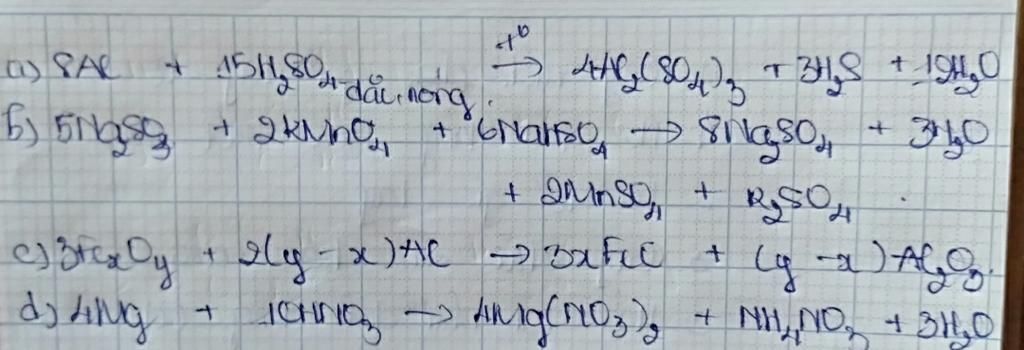 a) 8Al + 15H₂SO₄ đặc, nóng t⁰→ 4Al₂(SO₄)₃ + 3H₂S + 12H₂O
b) 5Na₂SO₃ + 2KMnO₄ + 6NaHSO₄ → 8Na₂SO₄ + 3H₂O
+ 2MnSO₄ + K₂SO₄.
c) 3FexOy + 2(y-x)Al → 3xFeO + (y-x)Al₂O₃.
d) 4Mg + 10HNO₃ → 4Mg(NO₃)₂ + NH₄NO₃ + 3H₂O